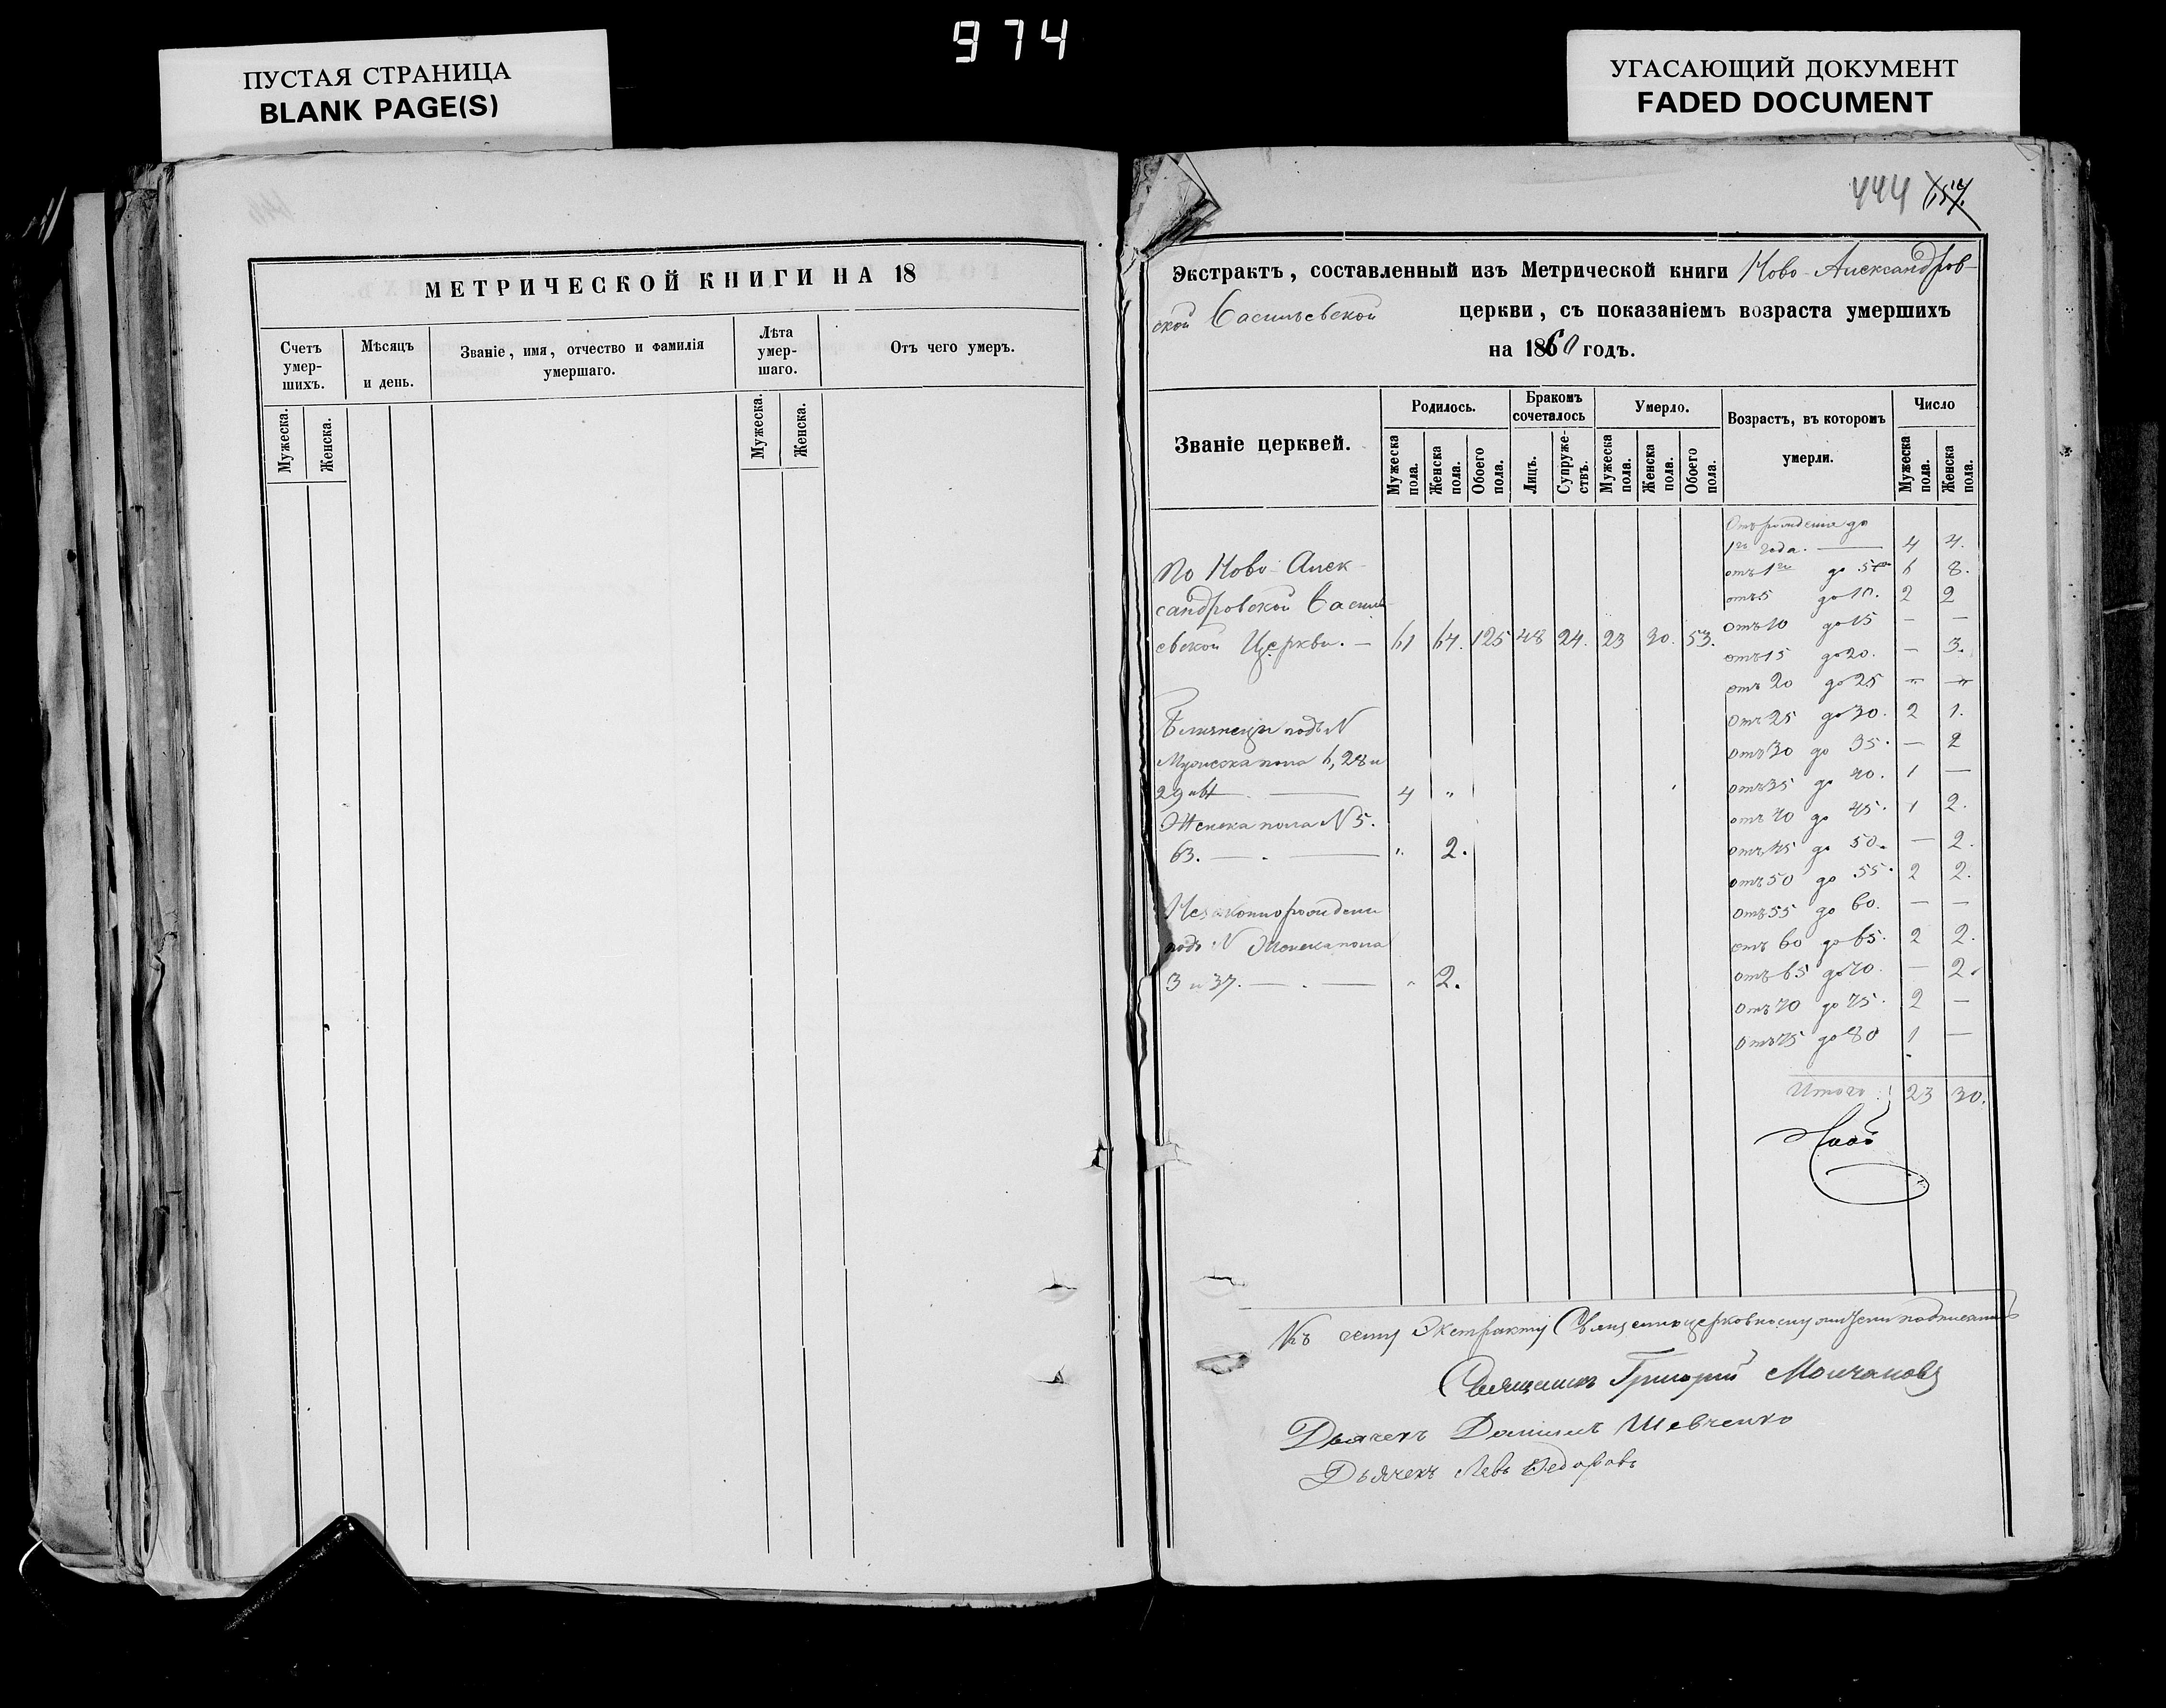 974
ПУСТАЯ СТРАНИЦА
BLANK PAGE(S)
УГАСАЮЩИЙ ДОКУМЕНТ
FADED DOCUMENT
МЕТРИЧЕСКОЙ КНИГИ НА 18
Счетъ умер-шихъ.
Мѣсяцъ и день.
Званіе, имя, отчество и фамилія умершаго.
Лѣта умер-шаго.
Отъ чего умеръ.
Мужеска. Женска.
Мужеска. Женска.
444 157.
Экстрактъ, составленный изъ Метрической книги Ново-Александров-
ской Васильевской церкви, съ показаніемъ возраста умершихъ
на 1860 годъ.
Званіе церквей.
Родилось.
Бракомъ сочеталось
Умерло.
Возрастъ, въ которомъ умерли.
Число
Мужеска пола. Женска пола. Обоего пола. Лицъ. Супружествъ. Мужеска пола. Женска пола. Обоего пола. Мужеска пола. Женска пола.
По Ново-Алек-
сандровской Василь-
евской Церкви. — 61 64. 125 48 24. 23 30. 53.
Близнецы подъ N
Мужеска пола 6, 28 и
29 4 "
Женска пола N 5.
63. — . — " 2.
Незаконнорожденн
подъ N Женска пола
3 и 37. — . — " 2.
Отъ рожденія до
1го года. — 4 4.
отъ 1го до 5 6 8.
отъ 5 до 10. 2 2
отъ 10 до 15 — —
отъ 15 до 20. — 3.
отъ 20 до 25 — —
отъ 25 до 30. 2 1.
отъ 30 до 35. — 2
отъ 35 до 40. 1 —
отъ 40 до 45. 1 2.
отъ 45 до 50. — 2.
отъ 50 до 55. 2 2.
отъ 55 до 60. — —
отъ 60 до 65. 2 2.
отъ 65 до 70. — 2.
отъ 70 до 75. 2 —
отъ 75 до 80 1 —
Итого: 23 30.
Къ сему Экстракту Священноцерковнослужители подписались
Священникъ Григорій Молчановъ
Дьячекъ Даніилъ Шевченко
Дьячекъ Левъ Федоровъ